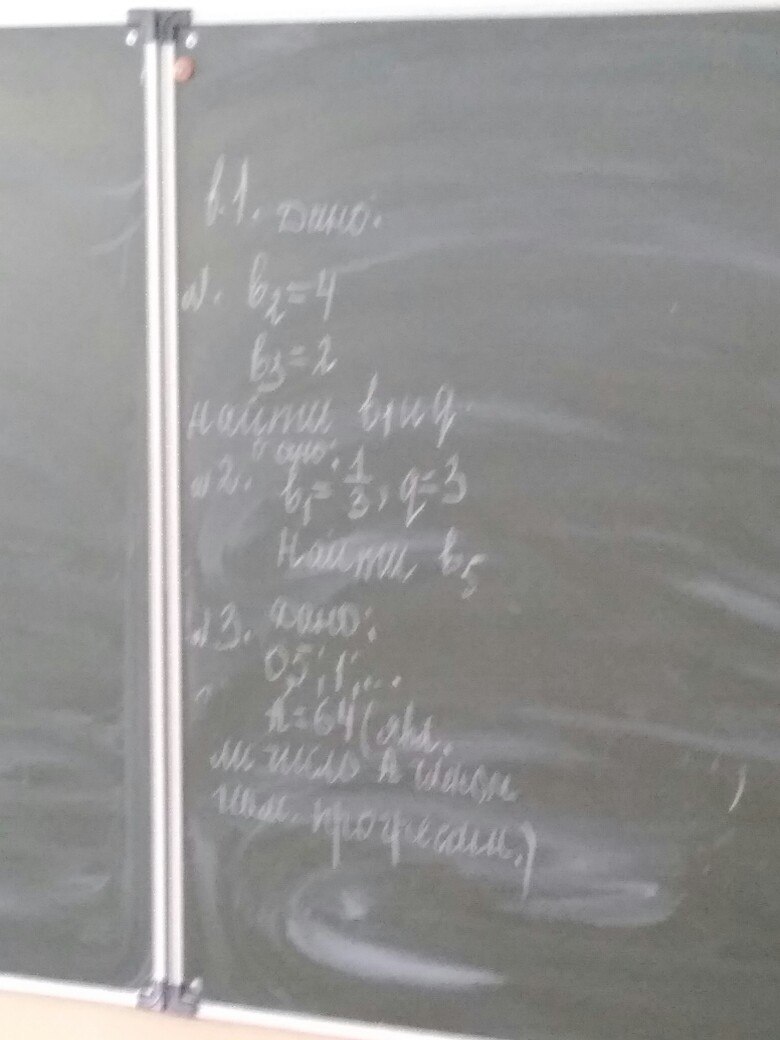 в.1. Дано:
№1. b₂=4
b₃=2
Найти b₁ и q
Дано:
№2. b₁=1/3, q=3
Найти b₅
№3. Дано:
0,5; 1; ...
A=64 (явл.
ли число A членом
прогрессии.)